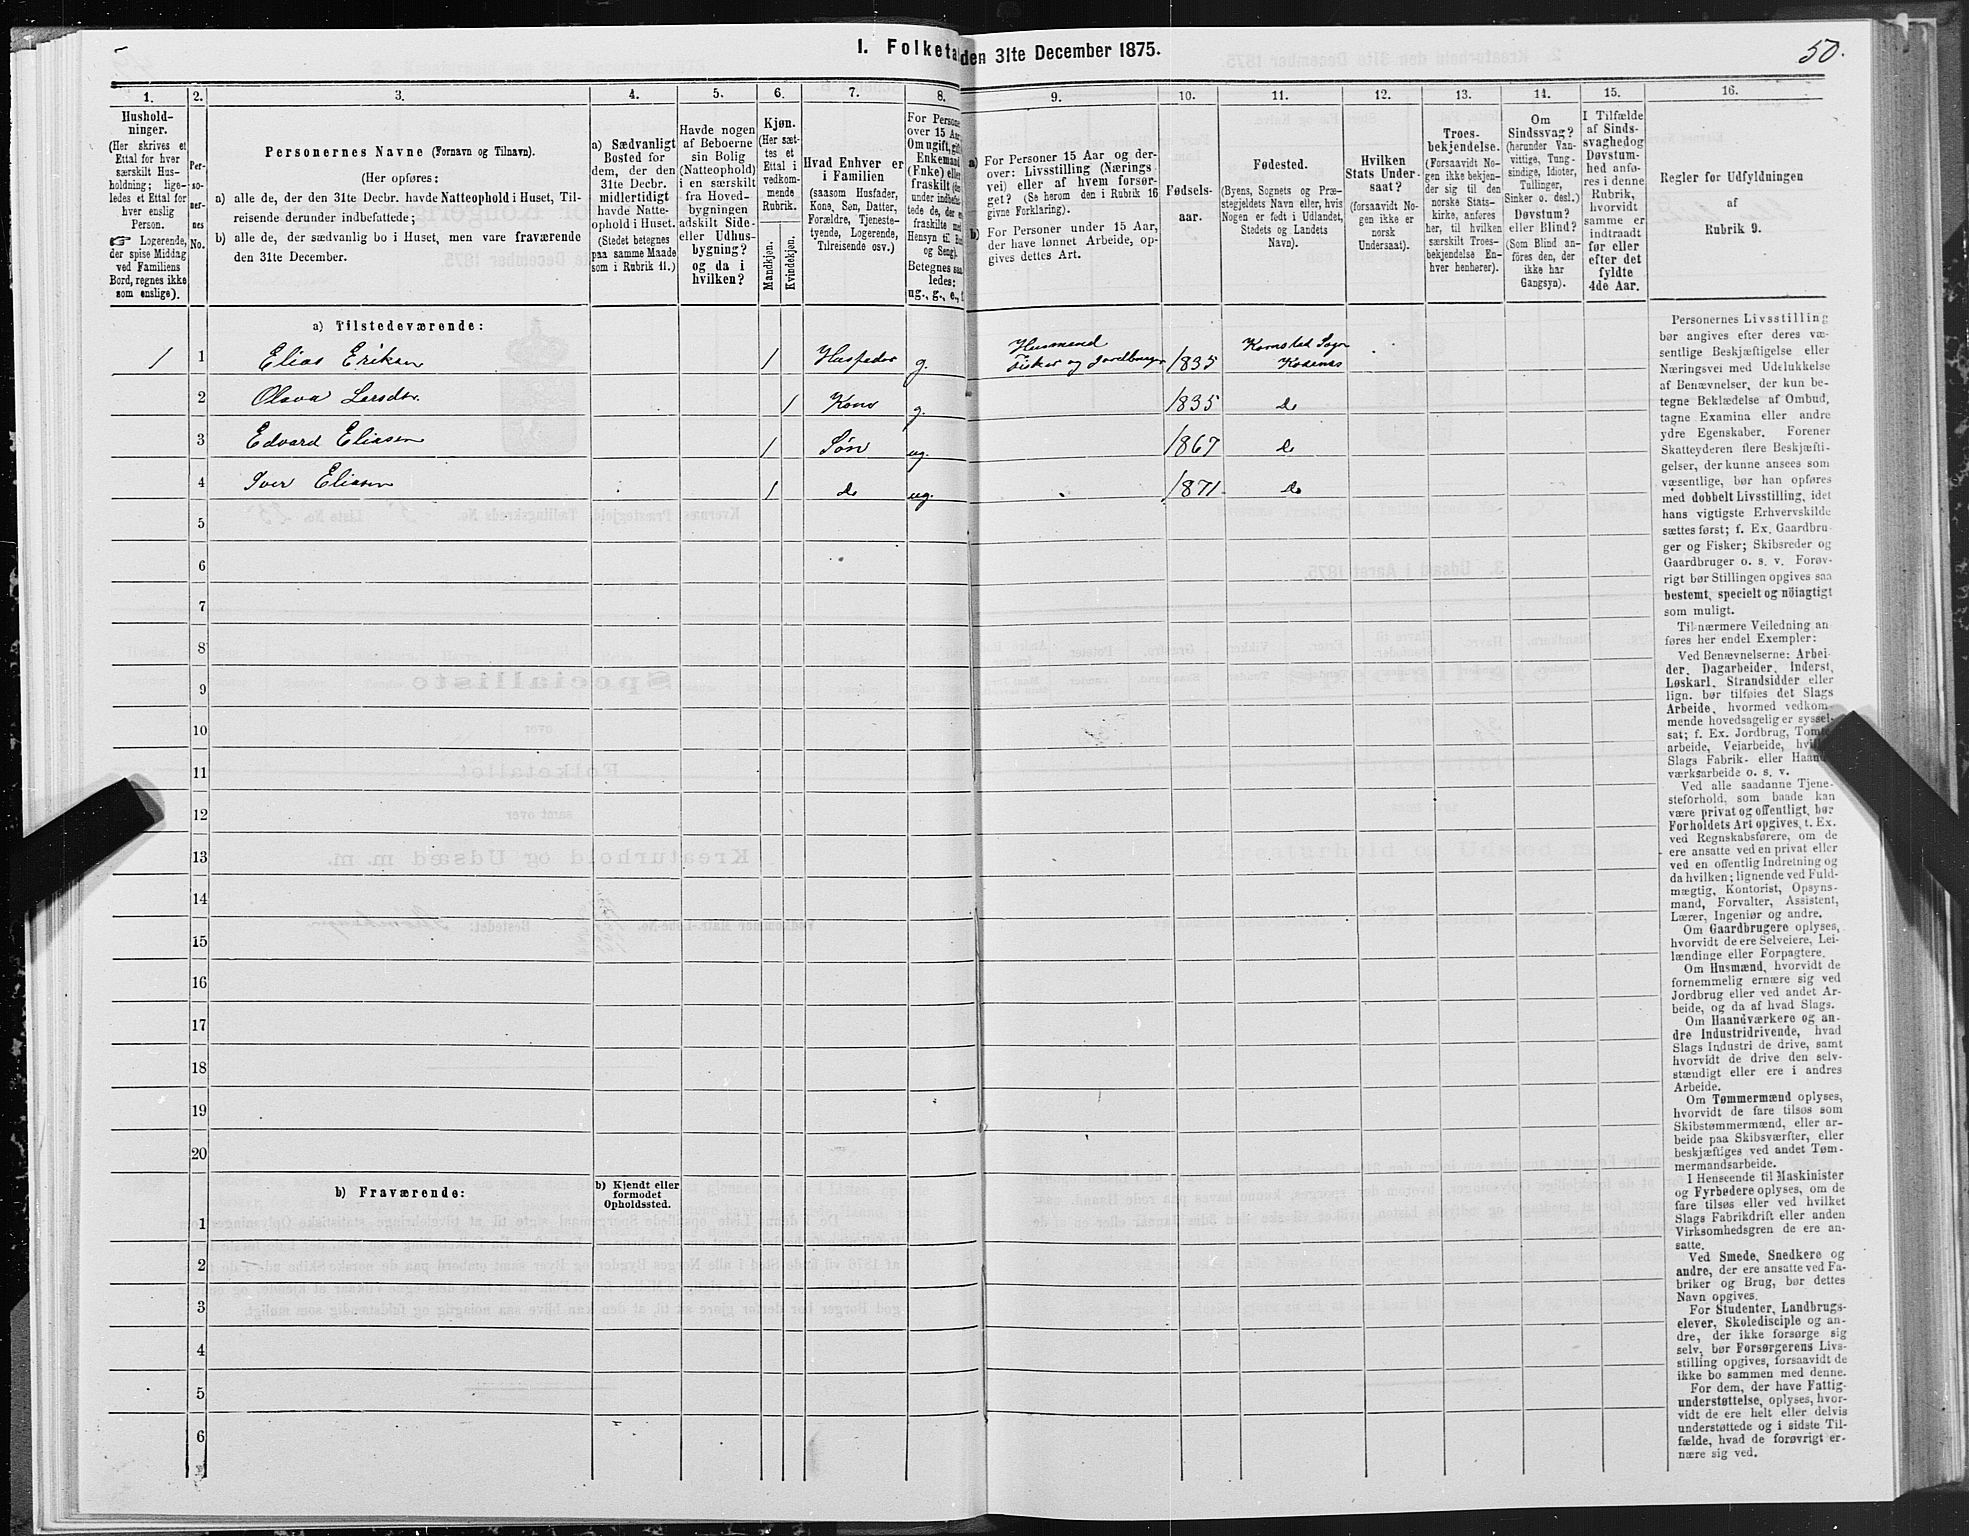 I. Folketa den 31te December 1875.
50.
1.
2.
3.
4.
5.
6.
7.
8.
9.
10.
11.
12.
13.
14.
15.
16.
Hushold-
ninger.
(Her skrives et
Ettal for hver
særskilt Hus-
holdning; lige-
ledes et Ettal for
hver enslig
Person.
☞ Logerende,
der spise Middag
ved Familiens
Bord, regnes ikke
som enslige).
Per-
so-
ner-
nes
No.
Personernes Navne (Fornavn og Tilnavn).
(Her opføres:
a) alle de, der den 31te Decbr. havde Natteophold i Huset, Til-
reisende derunder indbefattede;
b) alle de, der sædvanlig bo i Huset, men vare fraværende
den 31te December.
a) Sædvanligt
Bosted for
dem, der den
31te Decbr.
midlertidigt
havde Natte-
ophold i Huset.
(Stedet betegnes
paa samme Maade
som i Rubrik 11.)
Havde nogen
af Beboerne
sin Bolig
(Natteophold)
i en særskilt
fra Hoved-
bygningen
adskilt Side-
eller Udhus-
bygning?
og da i
hvilken?
Kjøn.
(Her sæt-
tes et
Ettal i
vedkom-
mende
Rubrik.
Mandkjøn.
Kvindekjøn.
Hvad Enhver er
i Familien
(saasom Husfader,
Kone, Søn, Datter,
Forældre, Tjeneste-
tyende, Logerende,
Tilreisende osv.)
For Persone
over 15 Aar
Om ugift, gift
Enkemand
(Enke) eller
fraskilt (der
under indbefat-
tede de, der e
fraskilte med
Hensyn til Bo
og Seng).
Betegnes saa
ledes:
ug., g., e., f.
a) For Personer 15 Aar og der-
over: Livsstilling (Nærings
vei) eller af hvem forsør-
get? (Se herom den i Rubrik 16
givne Forklaring).
b) For Personer under 15 Aar,
der have lønnet Arbeide, op-
gives dettes Art.
Fødsels-
aar.
Fødested.
(Byens, Sognets og Præ-
stegjeldets Navn eller, hvis
Nogen er født i Udlandet,
Stedets og Landets
Navn).
Hvilken
Stats Under-
saat?
(forsaavidt No-
gen ikke er
norsk
Undersaat).
Troes-
bekjendelse.
(Forsaavidt No-
gen ikke bekjen-
der sig til den
norske Stats-
kirke, anføres
her, til hvilken
særskilt Troes-
bekjendelse En-
hver henhører).
Om
Sindssvag?
(herunder Van-
vittige, Tung-
sindige, Idioter,
Tullinger,
Sinker o. desl.)
Døvstum?
eller Blind?
(Som Blind an-
føres den, der
ikke har
Gangsyn).
I Tilfælde
af Sinds-
svaghed og
Døvstum-
hed anfø-
res i denne
Rubrik,
hvorvidt
samme er
indtraadt
før eller
efter det
fyldte
4de Aar.
Regler for Udfyldningen
af
Rubrik 9.
a) Tilstedeværende:
1 1 Elias Eriksen 1 Husfader g. Husmand
Fisker og Jordbruger 1835 Kornstad Sogn
Kvernes
2 Olava Larsdtr. 1 Kone g. 1835 do
3 Edvard Eliasen 1 Søn ug. 1867 do
4 Iver Eliasen 1 do ug. 1871 do
5
6
7
8
9
10
11
12
13
14
15
16
17
18
19
20
b) Fraværende:
b) Kjendt eller
formodet
Opholdssted.
1
2
3
4
5
6
Personernes Livsstilling
bør angives efter deres væ-
sentlige Beskjæftigelse eller
Næringsvei med Udelukkelse
af Benævnelser, der kun be-
tegne Beklædelse af Ombud,
tagne Examina eller andre
ydre Egenskaber. Forener
Skatteyderen flere Beskjæfti-
gelser, der kunne ansees som
væsentlige, bør han opføres
med dobbelt Livsstilling, idet
hans vigtigste Erhvervskilde
sættes først; f. Ex. Gaardbru-
ger og Fisker; Skibsreder og
Gaardbruger o. s. v. Forøv-
rigt bør Stillingen opgives saa
bestemt, specielt og nöiagtigt
som muligt.
Til nærmere Veiledning an-
føres her endel Exempler:
Ved Benævnelserne: Arbei-
der, Dagarbeider, Inderst,
Løskarl, Strandsidder eller
lign. bør tilføies det Slags
Arbeide, hvormed vedkom-
mende hovedsagelig er syssel-
sat; f. Ex. Jordbrug, Tomte-
arbeide, Veiarbeide, hvil
Slags Fabrik- eller Haand-
værksarbeide o. s. v.
Ved alle saadanne Tjene-
steforhold, som baade kan
være privat og offentligt, bør
Forholdets Art opgives, t. Ex.
ved Regnskabsførere, om de
ere ansatte ved en privat eller
ved en offentlig Indretning og
da hvilken; lignende ved Fuld-
mægtig, Kontorist, Opsyns-
mand, Forvalter, Assistent,
Lærer, Ingeniør og andre.
Om Gaardbrugere oplyses,
hvorvidt de ere Selveiere, Lei-
lændinge eller Forpagtere.
Om Husmænd, hvorvidt de
fornemmelig ernære sig ved
Jordbrug eller ved andet Ar-
beide, og da af hvad Slags.
Om Haandværkere og an-
dre Industridrivende, hvad
Slags Industri de drive, samt
hvorvidt de drive den selv-
stændigt eller ere i andres
Arbeide.
Om Tømmermænd oplyses,
hvorvidt de fare tilsøs som
Skibstømmermænd, eller ar-
beide paa Skibsværfter, eller
beskjæftiges ved andet Tøm-
mermandsarbeide.
I Henseende til Maskinister
og Fyrbødere oplyses, om de
fare tilsøs eller ved hvilket
Slags Fabrikdrift eller anden
Virksomhedsgren de ere an-
satte.
Ved Smede, Snedkere og
andre, der ere ansatte ved Fa-
briker og Brug, bør dettes
Navn opgives.
For Studenter, Landbrugs-
elever, Skoledisciple og an-
dre, der ikke forsørge sig
selv, bør Forsørgerens Livs-
stilling opgives, forsaavidt de
ikke bo sammen med denne.
For dem, der have Fattig-
understøttelse, oplyses, hvor-
vidt de ere helt eller delvis
understøttede og i sidste Til-
fælde, hvad de forøvrigt er-
nære sig ved.